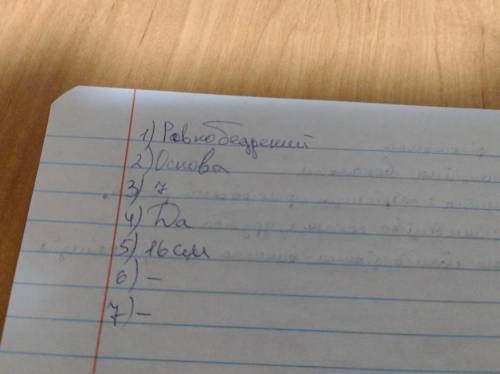 1) Равнобедрений
2) Основа
3) 7
4) Да
5) 16 см
6) –
7) –